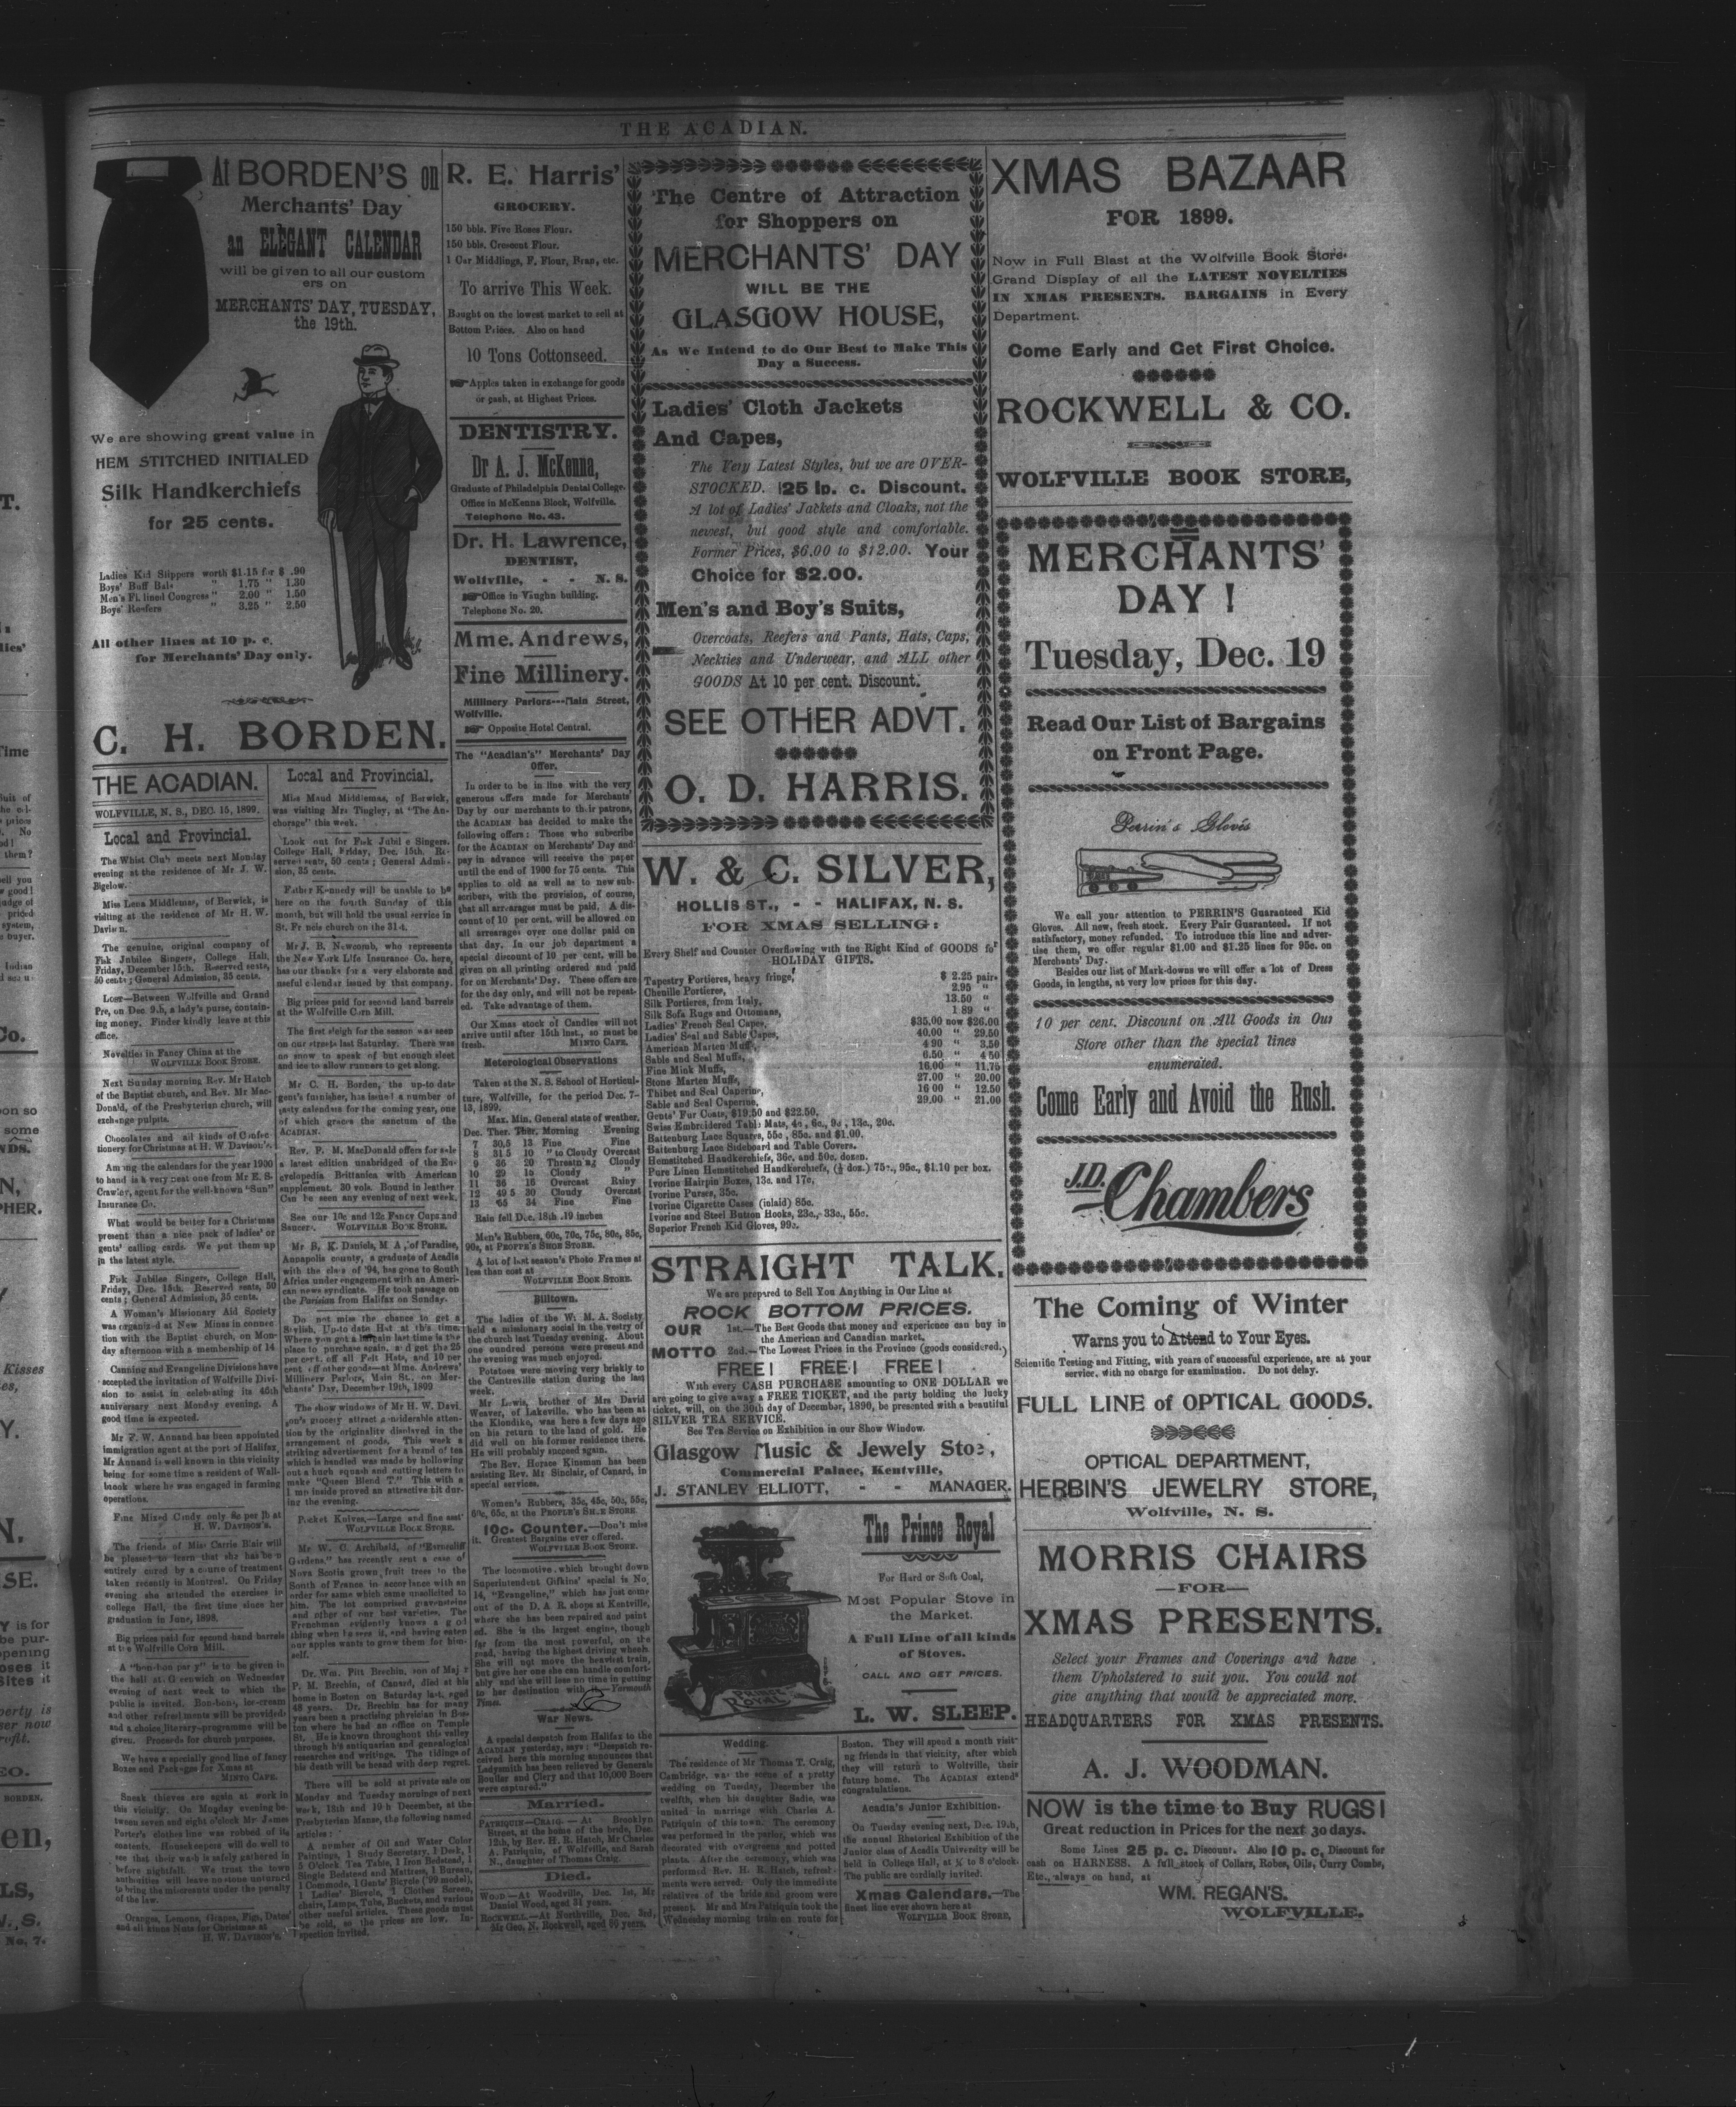 THE ACADIAN.
At BORDEN'S on
Merchants' Day
an ELEGANT CALENDAR
will be given to all our custom
ers on
MERCHANTS' DAY, TUESDAY,
the 19th.
We are showing great value in
HEM STITCHED INITIALED
Silk Handkerchiefs
for 25 cents.
Ladies' Kid Slippers worth $1.15 for $ .90
Boys' Buff Bals " 1.75 " 1.30
Men's Fl. lined Congress " 2.00 " 1.50
Boys' Reefers " 3.25 " 2.50
All other lines at 10 p. c.
for Merchants' Day only.
C. H. BORDEN.
THE ACADIAN.
WOLFVILLE, N. S., DEC. 15, 1899.
Local and Provincial.
The Whist Club meets next Monday
evening at the residence of Mr J. W.
Bigelow.
Miss Lena Middlemas, of Berwick, is
visiting at the residence of Mr H. W.
Davison.
The genuine, original company of
Fisk Jubilee Singers, College Hall,
Friday, December 15th. Reserved seats,
50 cents; General Admission, 35 cents.
LOST—Between Wolfville and Grand
Pre, on Dec. 9th, a lady's purse, contain-
ing money. Finder kindly leave at this
office.
Novelties in Fancy China at the
WOLFVILLE BOOK STORE.
Next Sunday morning Rev. Mr Hatch
of the Baptist church, and Rev. Mr Mac-
Donald, of the Presbyterian church, will
exchange pulpits.
Chocolates and all kinds of Confec-
tionery for Christmas at H. W. Davison's.
Among the calendars for the year 1900
to hand is a very neat one from Mr E. S.
Crawley, agent for the well-known "Sun"
Insurance Co.
What would be better for a Christmas
present than a nice pack of ladies' or
gents' calling cards. We put them up
in the latest style.
Fisk Jubilee Singers, College Hall,
Friday, Dec. 15th. Reserved seats, 50
cents; General Admission, 35 cents.
A Woman's Missionary Aid Society
was organized at New Minas in connec-
tion with the Baptist church, on Mon-
day afternoon with a membership of 14
Canning and Evangeline Divisions have
accepted the invitation of Wolfville Divi-
sion to assist in celebrating its 46th
anniversary next Monday evening. A
good time is expected.
Mr F. W. Annand has been appointed
immigration agent at the port of Halifax.
Mr Annand is well known in this vicinity
being for some time a resident of Wall-
brook where he was engaged in farming
operations.
Fine Mixed Candy only 8c per lb at
H. W. DAVISON'S.
The friends of Miss Carrie Blair will
be pleased to learn that she has been
entirely cured by a course of treatment
taken recently in Montreal. On Friday
evening she attended the exercises in
college Hall, the first time since her
graduation in June, 1898.
Big prices paid for second hand barrels
at the Wolfville Corn Mill.
A "bon-bon party" is to be given in
the hall at Greenwich on Wednesday
evening of next week to which the
public is invited. Bon-bons, ice-cream
and other refreshments will be provided
and a choice literary programme will be
given. Proceeds for church purposes.
We have a specially good line of fancy
Boxes and Packages for Xmas at
MINTO CAFE.
Sneak thieves are again at work in
this vicinity. On Monday evening be-
tween seven and eight o'clock Mr James
Porter's clothes line was robbed of its
contents. Housekeepers will do well to
see that their wash is safely gathered in
before nightfall. We trust the town
authorities will leave no stone unturned
to bring the miscreants under the penalty
of the law.
Oranges, Lemons, Grapes, Figs, Dates
and all kinds Nuts for Christmas at
H. W. DAVISON'S.
Local and Provincial.
Miss Maud Middlemas, of Berwick,
was visiting Mrs Tingley, at "The An-
chorage" this week.
Look out for Fisk Jubilee Singers.
College Hall, Friday, Dec. 15th. Re-
served seats, 50 cents; General Admis-
sion, 35 cents.
Father Kennedy will be unable to be
here on the fourth Sunday of this
month, but will hold the usual service in
St. Francis church on the 31st.
Mr J. B. Newcomb, who represents
the New York Life Insurance Co. here,
has our thanks for a very elaborate and
useful calendar issued by that company.
Big prices paid for second hand barrels
at the Wolfville Corn Mill.
The first sleigh for the season was seen
on our streets last Saturday. There was
no snow to speak of but enough sleet
and ice to allow runners to get along.
Mr C. H. Borden, the up-to date
gent's furnisher, has issued a number of
tasty calendars for the coming year, one
of which graces the sanctum of the
ACADIAN.
Rev. P. M. MacDonald offers for sale
a latest edition unabridged of the En-
cyclopedia Brittanica with American
supplement. 30 vols. Bound in leather.
Can be seen any evening of next week.
See our 10c and 12c Fancy Cups and
Saucers. WOLFVILLE BOOK STORE.
Mr B. K. Daniels, M. A., of Paradise,
Annapolis county, a graduate of Acadia
with the class of '94, has gone to South
Africa under engagement with an Ameri-
can news syndicate. He took passage on
the Parisian from Halifax on Sunday.
Do not miss the chance to get a
Stylish, Up-to date Hat at this time.
Where you got a bargain last time is the
place to purchase again, and get the 25
per cent. off all Felt Hats, and 10 per
cent. off other goods—at Mme. Andrews'
Millinery Parlors, Main St., on Mer-
chants' Day, December 19th, 1899
The show windows of Mr H. W. Davi-
son's grocery attract considerable atten-
tion by the originality displayed in the
arrangement of goods. This week a
striking advertisement for a brand of tea
which is handled was made by hollowing
out a hugh squash and cutting letters to
make "Queen Blend T." This with a
lamp inside proved an attractive hit dur-
ing the evening.
Pocket Knives.—Large and fine asst'
WOLFVILLE BOOK STORE.
Mr W. C. Archibald, of "Earnscliff
Gardens," has recently sent a case of
Nova Scotia grown fruit trees to the
South of France in accordance with an
order for same which came unsolicited to
him. The lot comprised gravensteins
and other of our best varieties. The
Frenchman evidently knows a good
thing when he sees it, and having eaten
our apples wants to grow them for him-
self.
Dr. Wm. Pitt Brechin, son of Major
P. M. Brechin, of Canard, died at his
home in Boston on Saturday last, aged
48 years. Dr. Brechin has for many
years been a practising physician in Bos-
ton where he had an office on Temple
St. He is known throughout this valley
through his antiquarian and genealogical
researches and writings. The tidings of
his death will be heard with deep regret.
There will be sold at private sale on
Monday and Tuesday mornings of next
week, 18th and 19th December, at the
Presbyterian Manse, the following named
articles:
A number of Oil and Water Color
Paintings, 1 Study Secretary, 1 Desk, 1
5 O'clock Tea Table, 1 Iron Bedstead, 1
Single Bedstead and Mattress, 1 Bureau,
1 Commode, 1 Gents' Bicycle ('99 model),
1 Ladies' Bicycle, 1 Clothes Screen,
chairs, Lamps, Tubs, Buckets, and various
other useful articles. These goods must
be sold, so the prices are low. In-
spection invited.
R. E. Harris'
GROCERY.
150 bbls. Five Roses Flour.
150 bbls. Crescent Flour.
1 Car Middlings, F. Flour, Bran, etc.
To arrive This Week.
Bought on the lowest market to sell at
Bottom Prices. Also on hand
10 Tons Cottonseed.
Apples taken in exchange for goods
or cash, at Highest Prices.
DENTISTRY.
Dr A. J. McKenna,
Graduate of Philadelphia Dental College.
Office in McKenna Block, Wolfville.
Telephone No. 43.
Dr. H. Lawrence,
DENTIST,
Wolfville, - - N. S.
Office in Vaughn building.
Telephone No. 20.
Mme. Andrews,
Fine Millinery.
Millinery Parlors---Main Street,
Wolfville.
Opposite Hotel Central.
The "Acadian's" Merchants' Day
Offer.
In order to be in line with the very
generous offers made for Merchants'
Day by our merchants to their patrons,
the ACADIAN has decided to make the
following offers: Those who subscribe
for the ACADIAN on Merchants' Day and
pay in advance will receive the paper
until the end of 1900 for 75 cents. This
applies to old as well as to new sub-
scribers, with the provision, of course,
that all arrearages must be paid. A dis-
count of 10 per cent. will be allowed on
all arrearages over one dollar paid on
that day. In our job department a
special discount of 10 per cent. will be
given on all printing ordered and paid
for on Merchants' Day. These offers are
for the day only, and will not be repeat-
ed. Take advantage of them.
Our Xmas stock of Candies will not
arrive until after 15th inst., so must be
fresh. MINTO CAFE.
Meterological Observations
Taken at the N. S. School of Horticul-
ture, Wolfville, for the period Dec. 7-
13, 1899.
Max. Min. General state of weather.
Dec. Ther. Ther. Morning Evening
7 30.5 13 Fine Fine
8 31.5 10 " to Cloudy Overcast
9 36 20 Threatn'ng Cloudy
10 29 15 Cloudy "
11 36 16 Overcast Rainy
12 49.5 30 Cloudy Overcast
13 65 34 Fine Fine
Rain fell Dec. 18th .19 inches
Men's Rubbers, 60c, 70c, 75c, 80c, 85c,
90c, at PEOPLE'S SHOE STORE.
A lot of last season's Photo Frames at
less than cost at
WOLFVILLE BOOK STORE.
Billtown.
The ladies of the W. M. A. Society
held a missionary social in the vestry of
the church last Tuesday evening. About
one oundred persons were present and
the evening was much enjoyed.
Potatoes were moving very briskly to
the Centreville station during the last
week.
Mr Lewis, brother of Mrs David
Weaver, of Lakeville, who has been at
the Klondike, was here a few days ago
on his return to the land of gold. He
did well on his former residence there.
He will probably succeed again.
The Rev. Horace Kinsman has been
assisting Rev. Mr Sinclair, of Canard, in
special services.
Women's Rubbers, 35c, 45c, 50c, 55c,
60c, 65c, at the PEOPLE'S SHOE STORE.
10c. Counter.—Don't miss
it. Greatest Bargains ever offered.
WOLFVILLE BOOK STORE.
The locomotive which brought down
Superintendent Gifkins' special is No.
14, "Evangeline," which has just come
out of the D. A. R. shops at Kentville,
where she has been repaired and paint
ed. She is the largest engine, though
far from the most powerful, on the
road, having the highest driving wheels.
She will not move the heaviest train,
but give her one she can handle comfort-
ably and she will lose no time in getting
to her destination with it.—Yarmouth
Times.
War News.
A special despatch from Halifax to the
ACADIAN yesterday, says: "Despatch re-
ceived here this morning announces that
Ladysmith has been relieved by Generals
Bouller and Clery and that 10,000 Boers
were captured."
Married.
PATRIQUIN—CRAIG.—At Brooklyn
Street, at the home of the bride, Dec.
12th, by Rev. H. R. Hatch, Mr Charles
A. Patriquin, of Wolfville, and Sarah
N., daughter of Thomas Craig.
Died.
WOOD—At Woodville, Dec. 1st, Mr
Daniel Wood, aged 31 years.
ROCKWELL—At Northville, Dec. 3rd,
Mr Geo. N. Rockwell, aged 66 years.
The Centre of Attraction
for Shoppers on
MERCHANTS' DAY
WILL BE THE
GLASGOW HOUSE,
As We Intend to do Our Best to Make This
Day a Success.
Ladies' Cloth Jackets
And Capes,
The Very Latest Styles, but we are OVER-
STOCKED. 25 p. c. Discount.
A lot of Ladies' Jackets and Cloaks, not the
newest, but good style and comfortable.
Former Prices, $6.00 to $12.00. Your
Choice for $2.00.
Men's and Boy's Suits,
Overcoats, Reefers and Pants, Hats, Caps,
Neckties and Underwear, and ALL other
GOODS At 10 per cent. Discount.
SEE OTHER ADVT.
O. D. HARRIS.
W. & C. SILVER,
HOLLIS ST., - - HALIFAX, N. S.
FOR XMAS SELLING:
Every Shelf and Counter Overflowing with the Right Kind of GOODS for
HOLIDAY GIFTS.
Tapestry Portieres, heavy fringe, $ 2.25 pair.
Chenille Portieres, 2.95 "
Silk Portieres, from Italy, 13.50 "
Silk Sofa Rugs and Ottomans, 1 89 "
Ladies' French Seal Capes, $35.00 now $26.00
Ladies' Seal and Sable Capes, 40.00 " 29.50
American Marten Muffs, 4 90 " 3.50
Sable and Seal Muffs, 6.50 " 4 50
Fine Mink Muffs, 16.00 " 11.75
Stone Marten Muffs, 27.00 " 20.00
Thibet and Seal Caperine, 16 00 " 12.50
Sable and Seal Caperine, 29.00 " 21.00
Gents' Fur Coats, $19.50 and $22.50.
Swiss Embroidered Table Mats, 4c, 6c., 9c, 13c., 20c.
Battenburg Lace Squares, 55c, 85c. and $1.00.
Battenburg Lace Sideboard and Table Covers.
Hemstitched Handkerchiefs, 36c. and 50c. dozen.
Pure Linen Hemstitched Handkerchiefs, (½ doz.) 75c., 95c., $1.10 per box.
Ivorine Hairpin Boxes, 13c. and 17c,
Ivorine Purses, 35c.
Ivorine Cigarette Cases (inlaid) 85c.
Ivorine and Steel Button Hooks, 23c., 33c., 55c.
Superior French Kid Gloves, 99c.
STRAIGHT TALK.
We are prepared to Sell You Anything in Our Line at
ROCK BOTTOM PRICES.
OUR MOTTO
1st.—The Best Goods that money and experience can buy in
the American and Canadian market.
2nd.—The Lowest Prices in the Province (goods considered.)
FREE! FREE! FREE!
With every CASH PURCHASE amounting to ONE DOLLAR we
are going to give away a FREE TICKET, and the party holding the lucky
ticket, will, on the 30th day of December, 1890, be presented with a beautiful
SILVER TEA SERVICE.
See Tea Service on Exhibition in our Show Window.
Glasgow Music & Jewely Sto e,
Commercial Palace, Kentville,
J. STANLEY ELLIOTT, - - MANAGER.
PRINCE ROYAL
The Prince Royal
For Hard or Soft Coal,
Most Popular Stove in
the Market.
A Full Line of all kinds
of Stoves.
CALL AND GET PRICES.
L. W. SLEEP.
Wedding.
The residence of Mr Thomas T. Craig,
Cambridge, was the scene of a pretty
wedding on Tuesday, December the
twelfth, when his daughter Sadie, was
united in marriage with Charles A.
Patriquin of this town. The ceremony
was performed in the parlor, which was
decorated with evergreens and potted
plants. After the ceremony, which was
performed Rev. H. R. Hatch, refresh-
ments were served. Only the immediate
relatives of the bride and groom were
present. Mr and Mrs Patriquin took the
Wednesday morning train en route for
Boston. They will spend a month visit-
ng friends in that vicinity, after which
they will return to Woltville, their
future home. The ACADIAN extends
congratulations.
Acadia's Junior Exhibition.
On Tuesday evening next, Dec. 19th,
the annual Rhetorical Exhibition of the
Junior class of Acadia University will be
held in College Hall, at ¼ to 8 o'clock.
The public are cordially invited.
Xmas Calendars.—The
finest line ever shown here at
WOLFVILLE BOOK STORE.
XMAS BAZAAR
FOR 1899.
Now in Full Blast at the Wolfville Book Store.
Grand Display of all the LATEST NOVELTIES
IN XMAS PRESENTS. BARGAINS in Every
Department.
Come Early and Get First Choice.
ROCKWELL & CO.
WOLFVILLE BOOK STORE,
MERCHANTS'
DAY!
Tuesday, Dec. 19
Read Our List of Bargains
on Front Page.
Perrin's Gloves
We call your attention to PERRIN'S Guaranteed Kid
Gloves. All new, fresh stock. Every Pair Guaranteed. If not
satisfactory, money refunded. To introduce this line and adver-
tise them, we offer regular $1.00 and $1.25 lines for 95c. on
Merchants' Day.
Besides our list of Mark-downs we will offer a lot of Dress
Goods, in lengths, at very low prices for this day.
10 per cent. Discount on All Goods in Our
Store other than the special lines
enumerated.
Come Early and Avoid the Rush.
J.D. Chambers
The Coming of Winter
Warns you to Attend to Your Eyes.
Scientific Testing and Fitting, with years of successful experience, are at your
service, with no charge for examination. Do not delay.
FULL LINE of OPTICAL GOODS.
OPTICAL DEPARTMENT,
HERBIN'S JEWELRY STORE,
Wolfville, N. S.
MORRIS CHAIRS
—FOR—
XMAS PRESENTS.
Select your Frames and Coverings and have
them Upholstered to suit you. You could not
give anything that would be appreciated more.
HEADQUARTERS FOR XMAS PRESENTS.
A. J. WOODMAN.
NOW is the time to Buy RUGS!
Great reduction in Prices for the next 30 days.
Some Lines 25 p. c. Discount. Also 10 p. c. Discount for
cash on HARNESS. A full stock of Collars, Robes, Oils, Curry Combs,
Etc., always on hand, at
WM. REGAN'S.
WOLFVILLE.